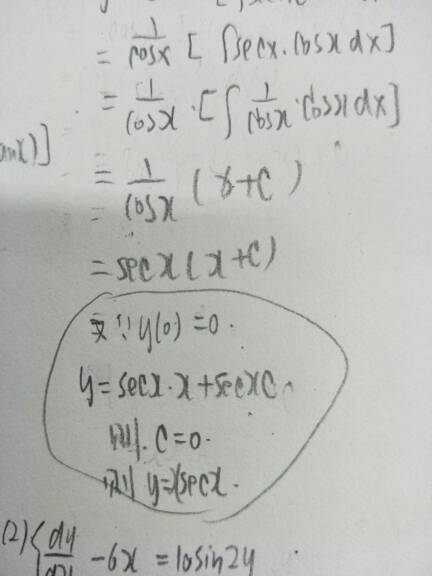 = 1/cosx [ ∫secx·cosx dx]
= 1/cosx ·[∫ 1/cosx ·cosx dx]
anx)]
= 1/cosx (x+C)
= secx(x+C)
又∵y(0)=0.
y=secx·x+secxC
则.C=0.
则 y=xsecx.
(2) dy/dx -6x = 10sin2y